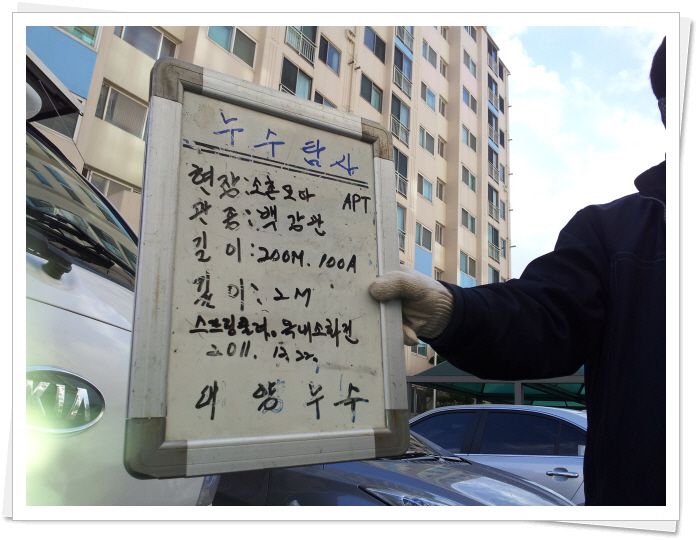 누수탐사
현장:소촌모아 APT
관종:백강관
길이:200M. 100A
깊이:2M
스프링쿨러, 옥내소화전
2011. 12. 22.
태양누수
KIA